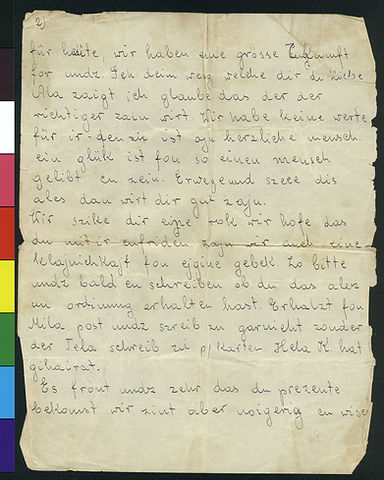 2)
für heute, wir haben eine grösse Zukunft
for undz. Ich dein weg welche dir du
Ala zaigt ich glaube das der der
richtiger zain wirt. Wir habe keine werte
für ir. den zir ist ajn herzliche mensch.
ein glük ist fon so einen mensch
gelibt cu zein. Erwege und szece dis
ales dan wirt dir gut zajn.
Wir szike dir ejne rok wir hofe das
du mit ir cufriden zajn wir auch eine
klajnichkajt fon ejgine gebek. Zo bitte
undz bald cu schreiben ob du das ales
in ordinung erhalten hast. Erhalzt fon
Mila post undz szreib zi garnicht zonder
der Tela schreib zi p/karten. Hela K. hat
gihairat.
Es front undz zehr das du prezente
bekomst wir zint aber noigerig cu wise